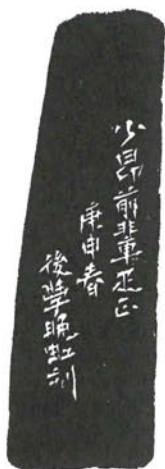 少昂前輩正
庚申春
後學晩虹刻